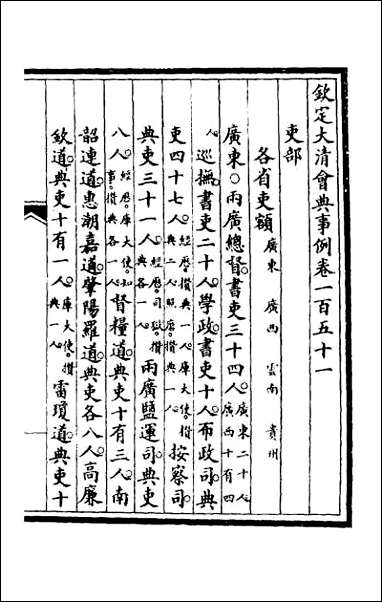 欽定大清會典事例卷一百五十一
吏部
各省吏額廣東 廣西 雲南 貴州
廣東○兩廣總督書吏三十四人廣東二十人廣西十有四
人巡撫書吏二十人學政書吏十人布政司典
吏四十七人經歷攢典一人庫大使攢典二人照磨攢典一人按察司
典吏三十一人經歷司獄攢典各一人兩廣鹽運司典吏
八人經歷庫大使知事攢典各一人督糧道典吏十有三人南
韶連道惠潮嘉道肇陽羅道典吏各八人高廉
欽道典吏十有一人庫大使攢典一人雷瓊道典吏十